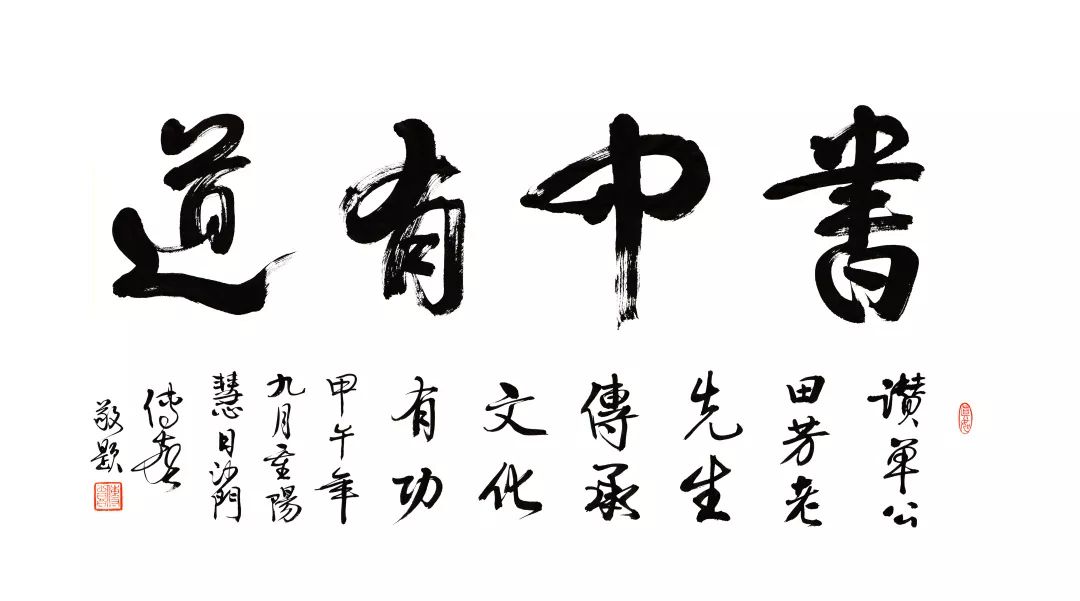 書中有道
讃單公
田芳老
先生
傳承
文化
有功
甲午年
九月重陽
慧日沙門
傳喜
敬題